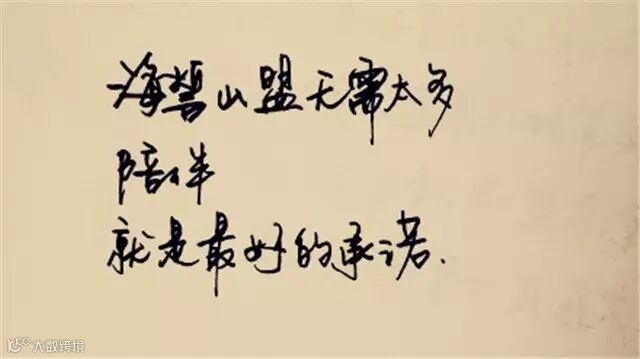 海誓山盟无需太多
陪伴
就是最好的承诺.
大数跨境